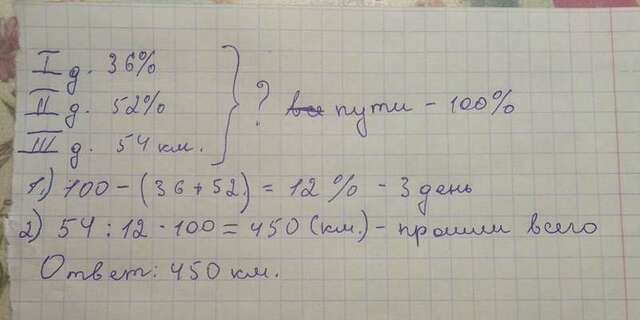 I д. 36%
II д. 52% } ? пути - 100%
III д. 54 км.
1) 100 - (36 + 52) = 12 % - 3 день
2) 54 : 12 · 100 = 450 (км.) - прошли всего
Ответ: 450 км.